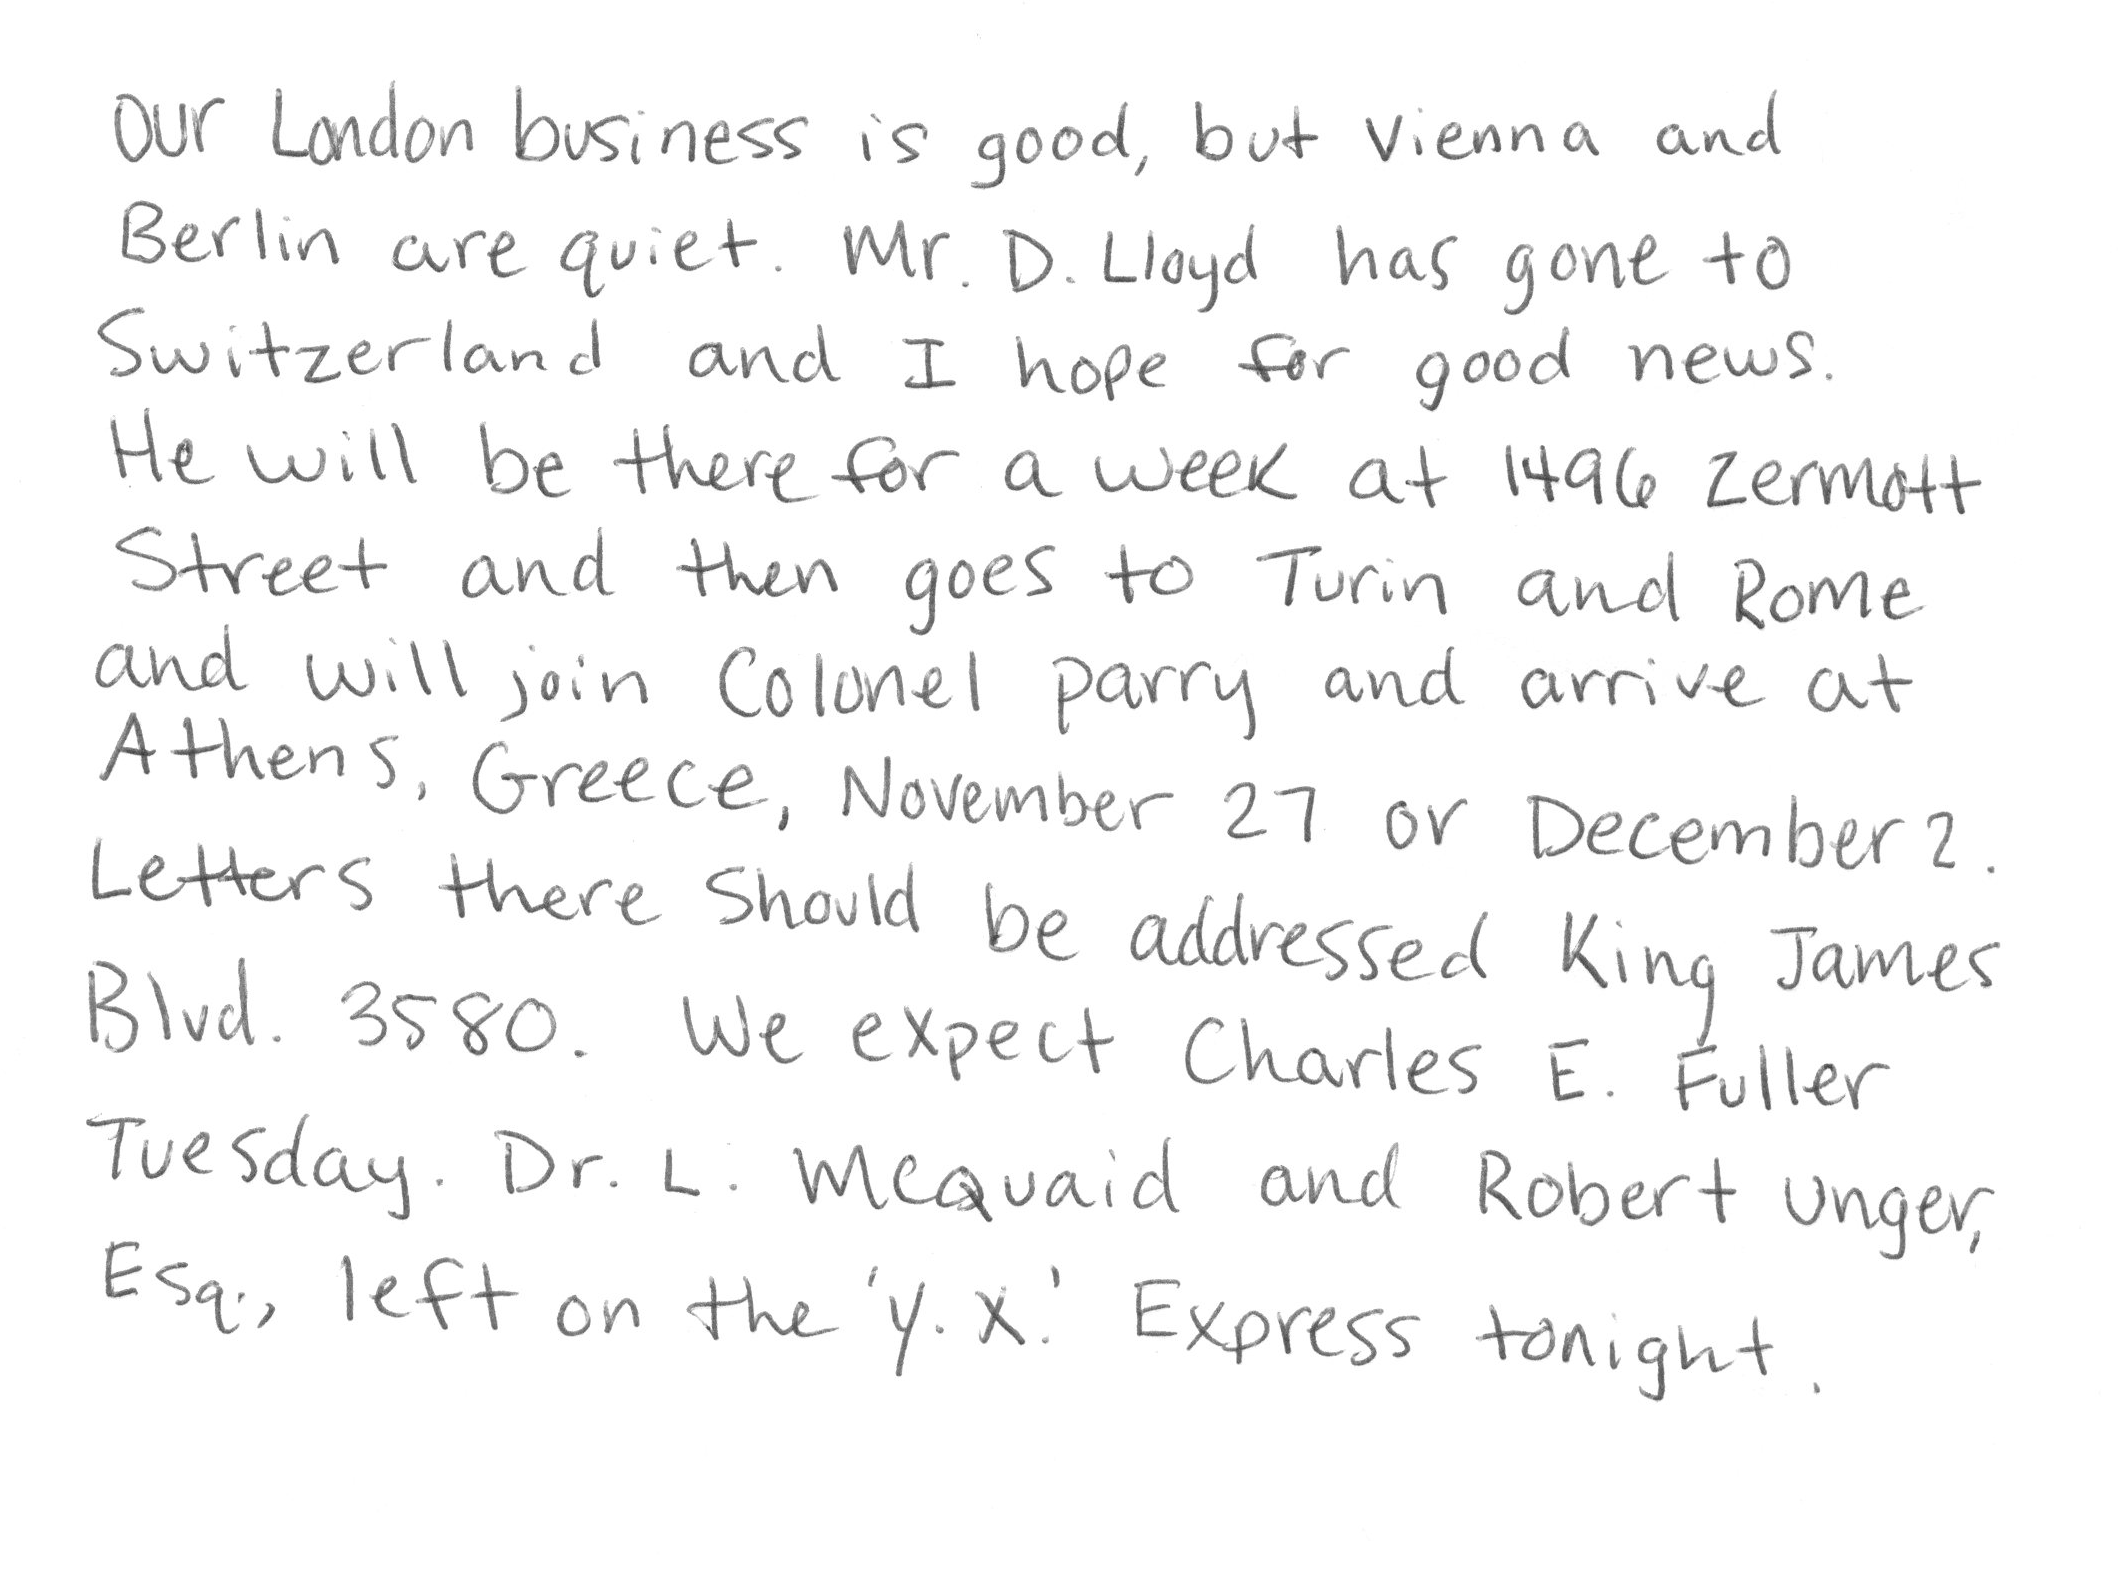 Our London business is good, but Vienna and
Berlin are quiet. Mr. D. Lloyd has gone to
Switzerland and I hope for good news.
He will be there for a week at 1496 Zermott
Street and then goes to Turin and Rome
and will join Colonel Parry and arrive at
Athens, Greece, November 27 or December 2.
Letters there should be addressed King James
Blvd. 3580. We expect Charles E. Fuller
Tuesday. Dr. L. McQuaid and Robert Unger,
Esq., left on the 'Y. X.' Express tonight.